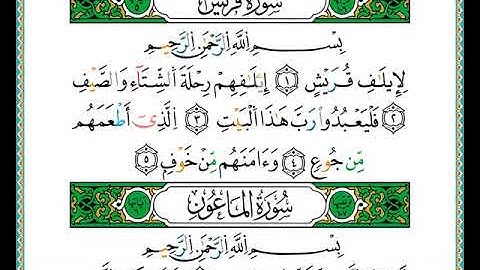 سُورَةُ قُرَيْشٍ
بِسْمِ ٱللَّهِ ٱلرَّحْمَٰنِ ٱلرَّحِيمِ
لِإِيلَٰفِ قُرَيْشٍ ١ إِۦلَٰفِهِمْ رِحْلَةَ ٱلشِّتَآءِ وَٱلصَّيْفِ
٢ فَلْيَعْبُدُوا۟ رَبَّ هَٰذَا ٱلْبَيْتِ ٣ ٱلَّذِىٓ أَطْعَمَهُم
مِّن جُوعٍ ٤ وَءَامَنَهُم مِّنْ خَوْفٍ ٥
سُورَةُ المَاعُونِ
بِسْمِ ٱللَّهِ ٱلرَّحْمَٰنِ ٱلرَّحِيمِ